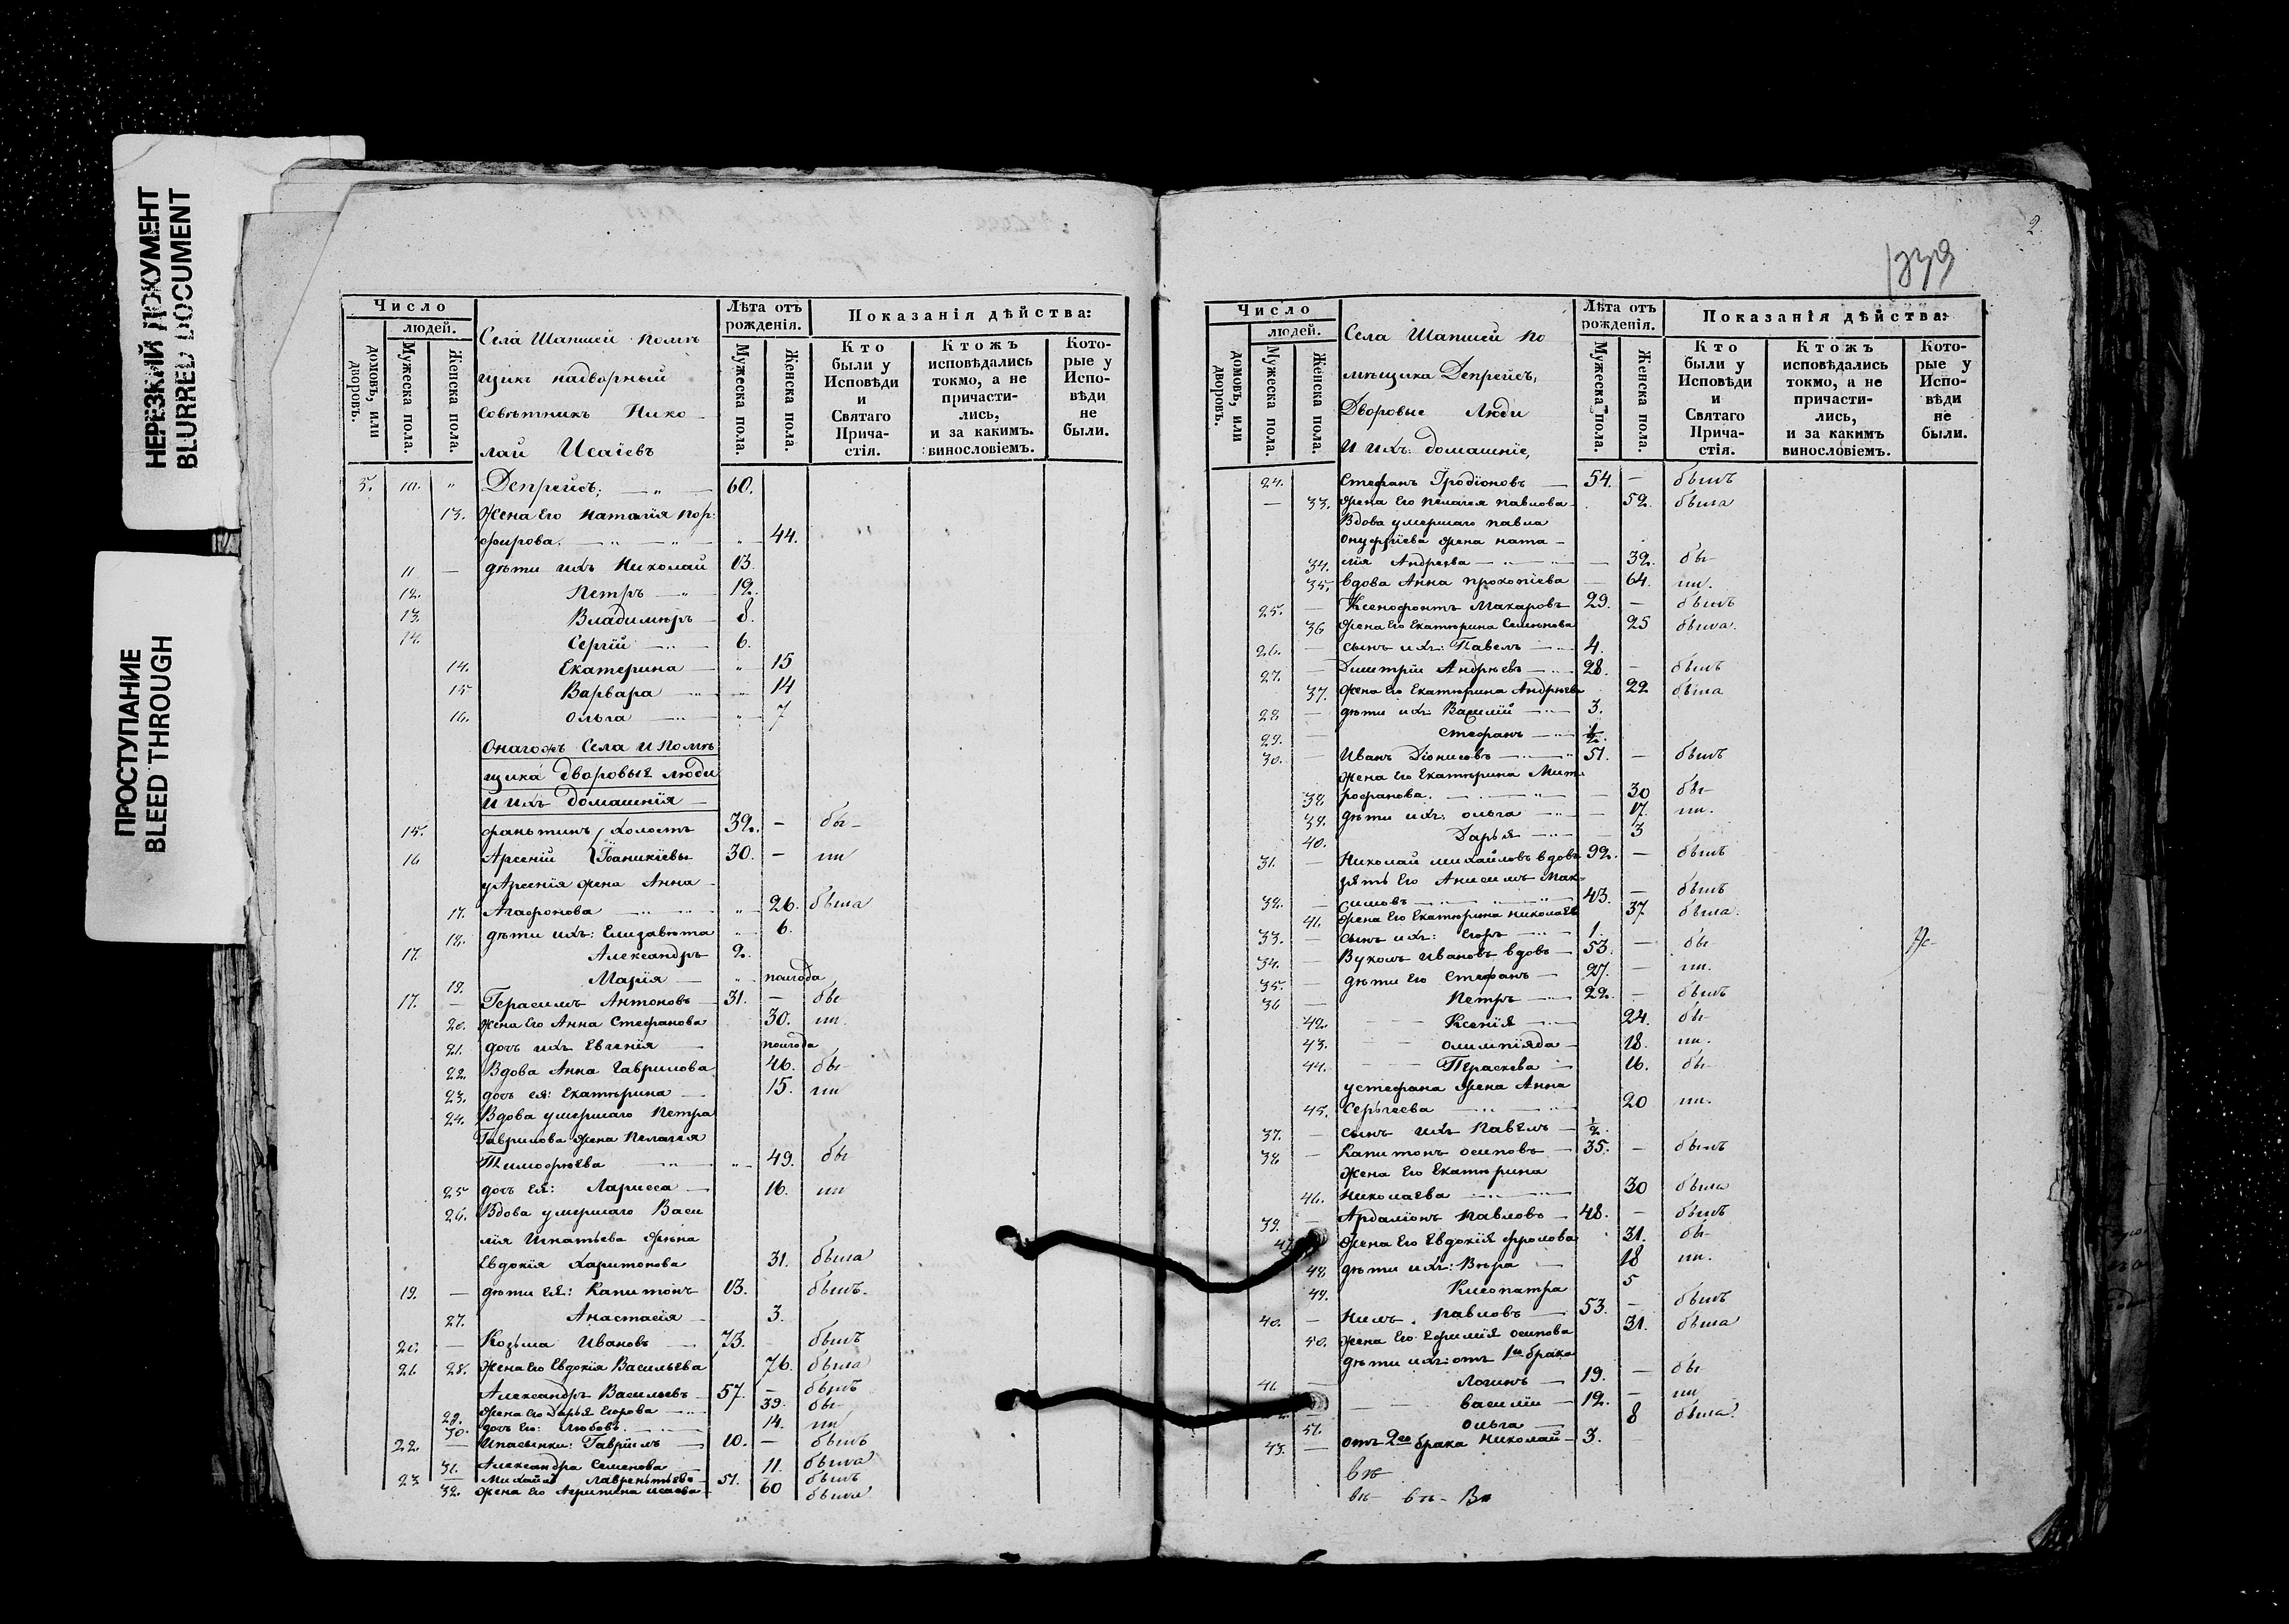 НЕРЕЗКИЙ ДОКУМЕНТ
BLURRED DOCUMENT
ПРОСТУПАНИЕ
BLEED THROUGH
Число
людей.
домовъ, или дворовъ.
Мужеска пола.
Женска пола.
Села Шапшей помѣ
щикъ надворный
Совѣтникъ Нико
лай Исаіевъ
Лѣта отъ рожденія.
Мужеска пола.
Женска пола.
Показанія дѣйства:
Кто были у Исповѣди и Святаго Причастія.
Ктожъ исповѣдались токмо, а не причастились, и за какимъ винословіемъ.
Которые у Исповѣди не были.
5. 10. " Депрейсъ; — " — 60.
13. Жена Его Наталія Пор:
фирова. — " — " — " 44.
11 — дѣти ихъ Николай 13.
12. Петръ — " 12.
13. Владимиръ 8.
14. Сергій — " — 6.
14. Екатерина — " 15
15 Варвара — " — " 14
16. Ольга — " — " 7
Онагожъ Села и помѣ
щика дворовые люди
и ихъ домашнія —
15. холостъ 39. — бы —
16 Арсеній Іоаникіевы 30. — лъ
у Арсенія жена Анна
17. Агафонова — " 26. была
18. дѣти ихъ: Елизавета " 6.
17. Александръ 2.
19. Марія — " полгода
17. — Герасимъ Антоновъ — 31. — бы
20. жена Его Анна Стефанова 30. ли.
21. дочь ихъ Евгенія — полгода
22. Вдова Анна Гаврилова 46. бы
23. дочь ея: Екатерина — 15. ли
24. Вдова умершаго Петра
Гаврилова жена Пелагея
Тимофѣева — " 49. бы
25 дочь ея: Ларисса — 16. ли
26. Вдова умершаго Васи
лія Игнатьева жена
Евдокія Харитонова 31. была
19. — дѣти ея: Капитонъ 13. былъ.
27. Анастасія — 3.
20. — Козьма Ивановъ — 73. былъ
21. 28. Жена Его Евдокія Васильева 76. была
Александръ Васильевъ 57. — былъ
29. жена его Дарья Егорова — 39. бы
30. дочь Его: Любовь. 14. ли
22. — Гавріилъ — 10. — былъ
31. Александра Семенова 11. была
23 — Михайла Лаврентьевъ 51. былъ
32. жена Его Агрипина Исаева 60 была
2
1339
Число
людей.
домовъ, или дворовъ.
Мужеска пола.
Женска пола.
Села Шапшей по
мѣщика Депрейсъ,
Дворовые Люди
И ихъ домашніе,
Лѣта отъ рожденія.
Мужеска пола.
Женска пола.
Показанія дѣйства:
Кто были у Исповѣди и Святаго Причастія.
Ктожъ исповѣдались токмо, а не причастились, и за какимъ винословіемъ.
Которые у Исповѣди не были.
24. Стефанъ Іродіоновъ — 54. — былъ
— 33. жена Его Пелагея Павлова 52. была
Вдова умершаго Павла
Онуфріева жена Ната —
34. лія Андреева — " — 39. бы
35. Вдова Анна Прокопіева — 64. ли.
25. — Ксенофонтъ Макаровъ 29. — былъ
36 жена Его Екатерина Семенова 25 была.
26. — сынъ ихъ: Павелъ — 4.
27. — Димитрій Андреевъ — 28. — былъ
37. жена Его Екатерина Андреева 22 была
28 — дѣти ихъ: Василій — 3.
29. — Стефанъ — ½.
30. — Иванъ Діонисовъ — 51. — былъ
жена Его Екатерина Мит.
38 рофанова. — 30 бы
39. дѣти ихъ: Ольга — 17. ли.
40. Дарья — 3
31. — Николай Михайловъ вдовъ 92. — былъ
зять Его Анисимъ Мак
32. — симовъ — 43. — былъ
41. жена Его Екатерина Николаев 37 была.
33. — сынъ ихъ: Егоръ — 1.
34. — Вуколъ Ивановъ вдовъ — 53. — бы
35. — дѣти Его Стефанъ — 27. — ли.
36 — Петръ — 22. — былъ
42. Ксенія — 24. бы
43. Олимпіяда — 18. ли.
44. Параскева — 16. бы
у Стефана жена Анна
45. Сергеева — 20 ли.
37. — сынъ ихъ Павелъ — ½.
38 — Капитонъ Осиповъ — 35. — былъ
жена Его Екатерина
46. Николаева — 30 была
39. — Ардаліонъ Павловъ — 48. — былъ
47 жена Его Евдокія Фролова 31. бы
48 дѣти ихъ: Вѣра — 18 ли.
49. Клеопатра 5
40. — Нилъ Павловъ — 53. — былъ
50. жена Его Ефимія Осипова 31. была
дѣти ихъ: отъ 1го брака
41. — Логинъ — 19. — бы
— Василій — 12. — ли
51. Ольга — 8 была.
43. — отъ 2го брака Николай — 3.